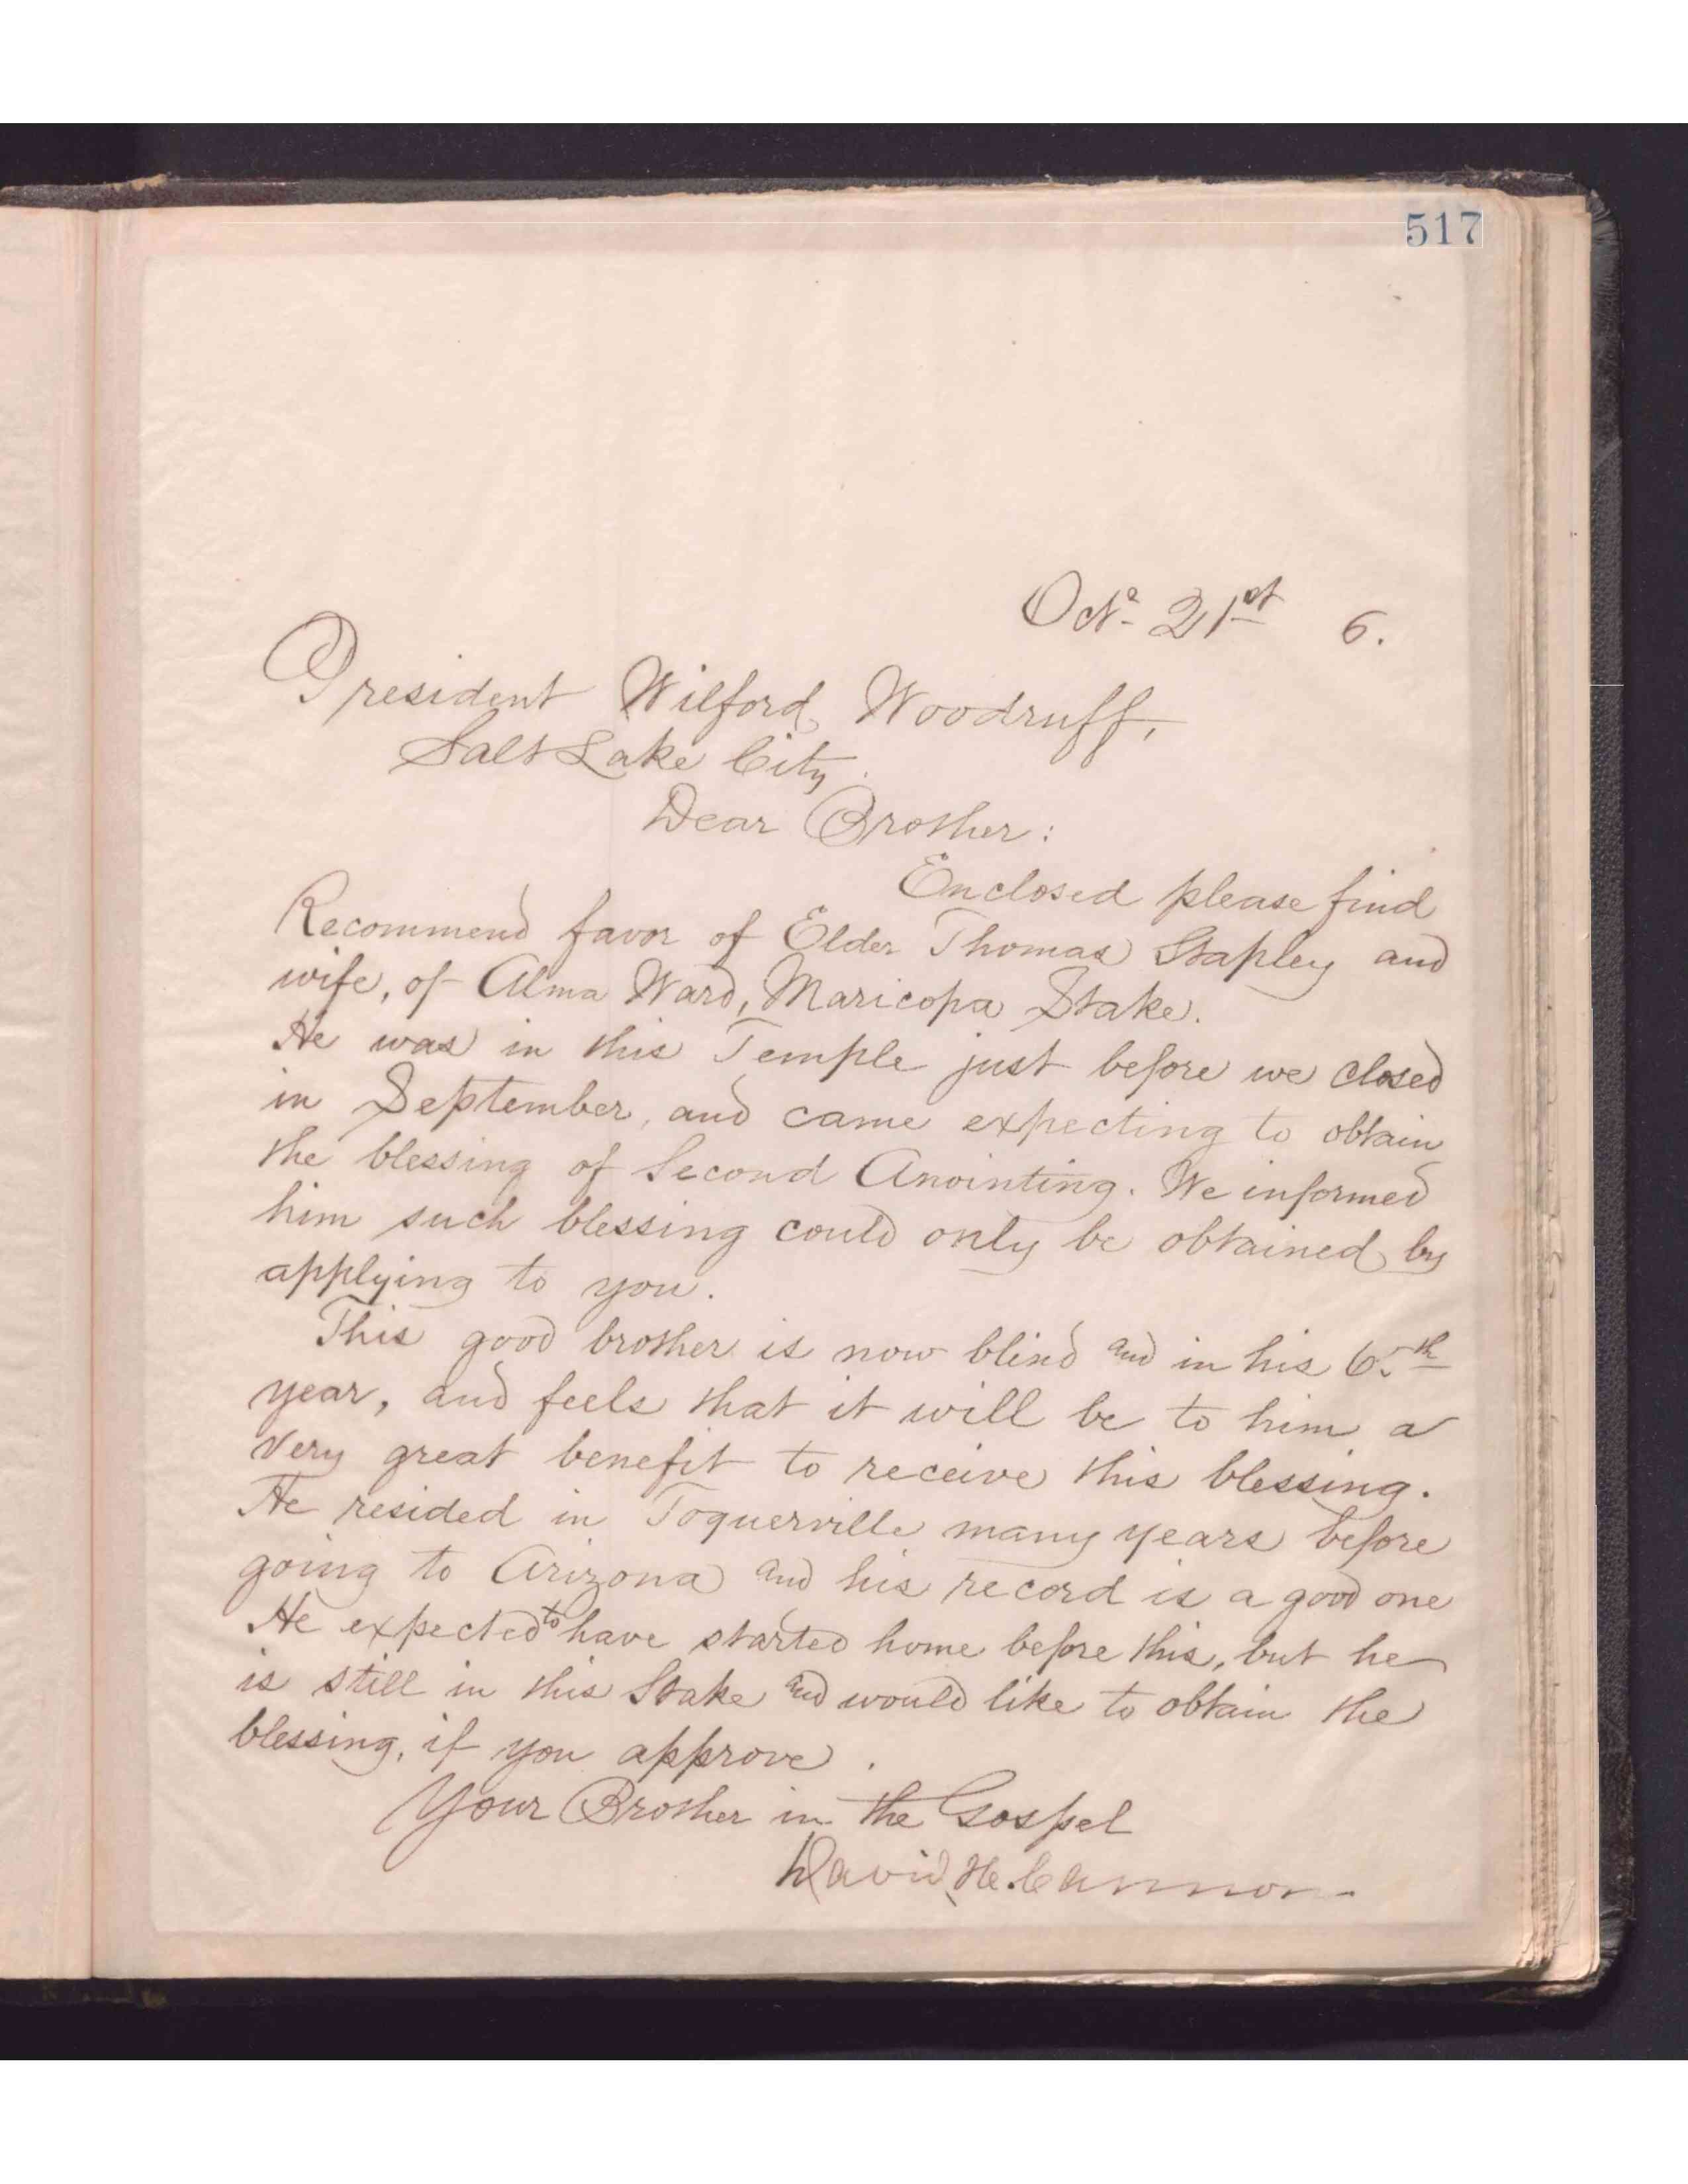 517
Oct. 21st 6.
President Wilford Woodruff,
Salt Lake City.
Dear Brother:
Enclosed please find
Recommend favor of Elder Thomas Stapley and
wife, of Alma Ward, Maricopa Stake.
He was in this Temple just before we closed
in September, and came expecting to obtain
the blessing of Second Anointing. We informed
him such blessing could only be obtained by
applying to you.
This good brother is now blind and in his 65th
year, and feels that it will be to him a
very great benefit to receive this blessing.
He resided in Toquerville many years before
going to Arizona and his record is a good one
He expected to have started home before this, but he
is still in this Stake and would like to obtain the
blessing, if you approve.
Your Brother in the Gospel
David H. Cannon